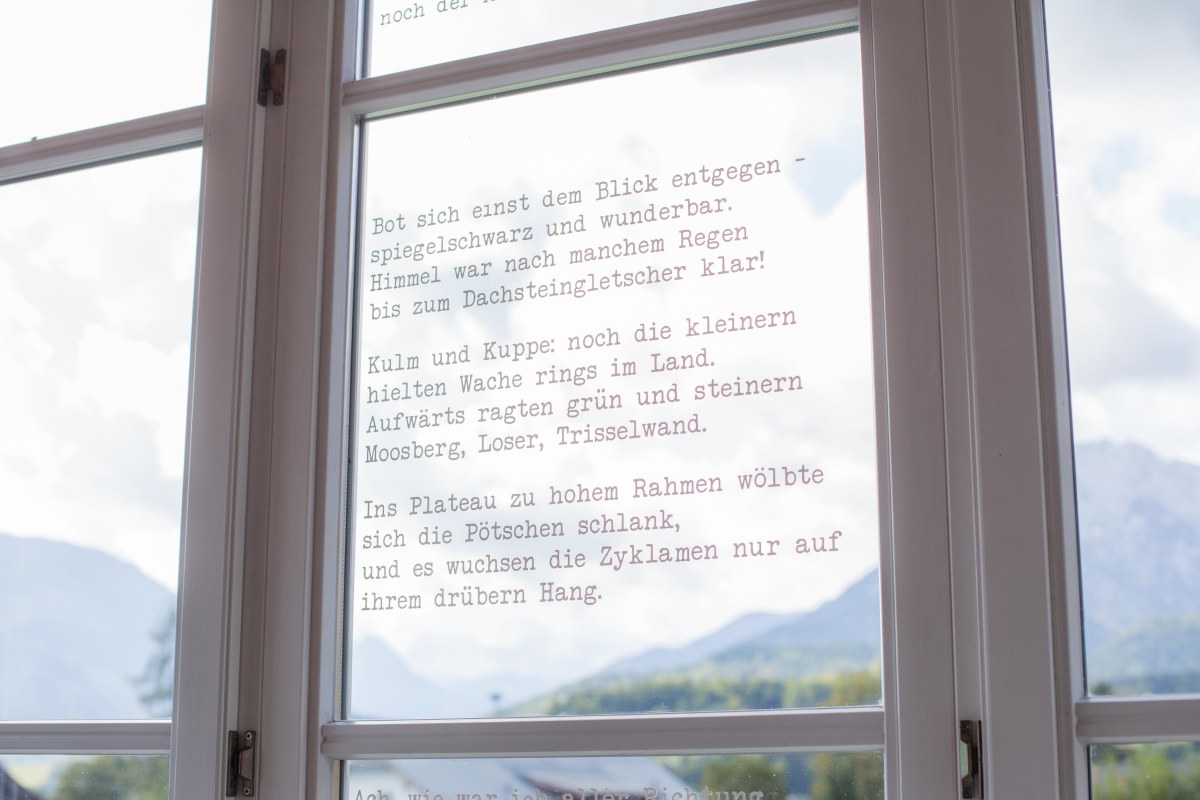 noch der
Bot sich einst dem Blick entgegen -
spiegelschwarz und wunderbar.
Himmel war nach manchem Regen
bis zum Dachsteingletscher klar!
Kulm und Kuppe: noch die kleinern
hielten Wache rings im Land.
Aufwärts ragten grün und steinern
Moosberg, Loser, Trisselwand.
Ins Plateau zu hohem Rahmen wölbte
sich die Pötschen schlank,
und es wuchsen die Zyklamen nur auf
ihrem drübern Hang.
Ach, wie war ich aller Richtung